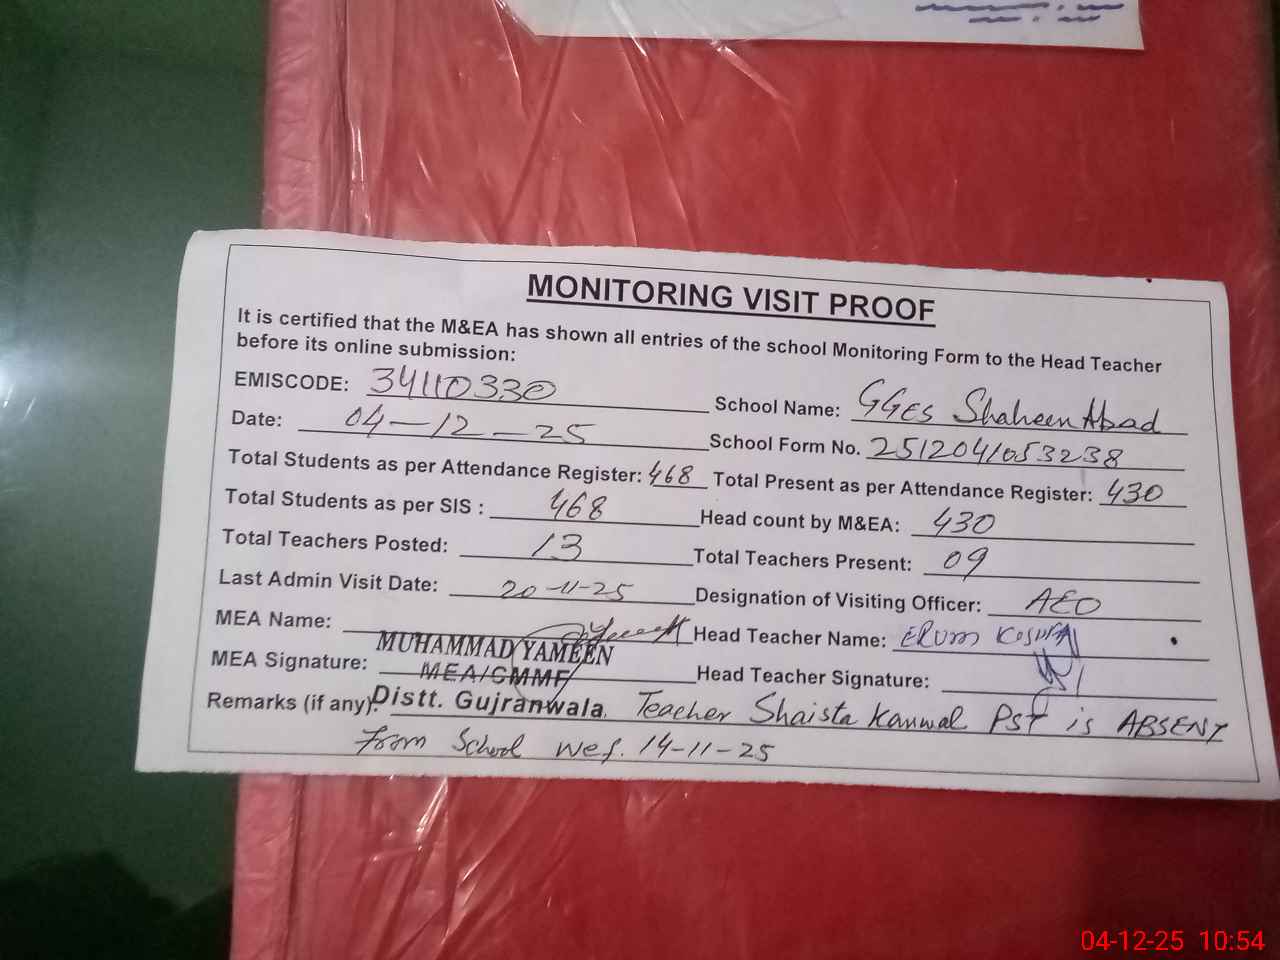 MONITORING VISIT PROOF
It is certified that the M&EA has shown all entries of the school Monitoring Form to the Head Teacher
before its online submission:
EMISCODE: 34110330 School Name: GGES Shaheen Abad
Date: 04-12-25 School Form No. 2512041053238
Total Students as per Attendance Register: 468 Total Present as per Attendance Register: 430
Total Students as per SIS : 468 Head count by M&EA: 430
Total Teachers Posted: 13 Total Teachers Present: 09
Last Admin Visit Date: 20-11-25 Designation of Visiting Officer: AEO
MEA Name: Head Teacher Name: ERUM
MUHAMMAD YAMEEN
MEA Signature: MEA/CMMF Head Teacher Signature:
Remarks (if any): Distt. Gujranwala. Teacher Shaista Kanwal PST is ABSENT
from School wef. 14-11-25
04-12-25 10:54